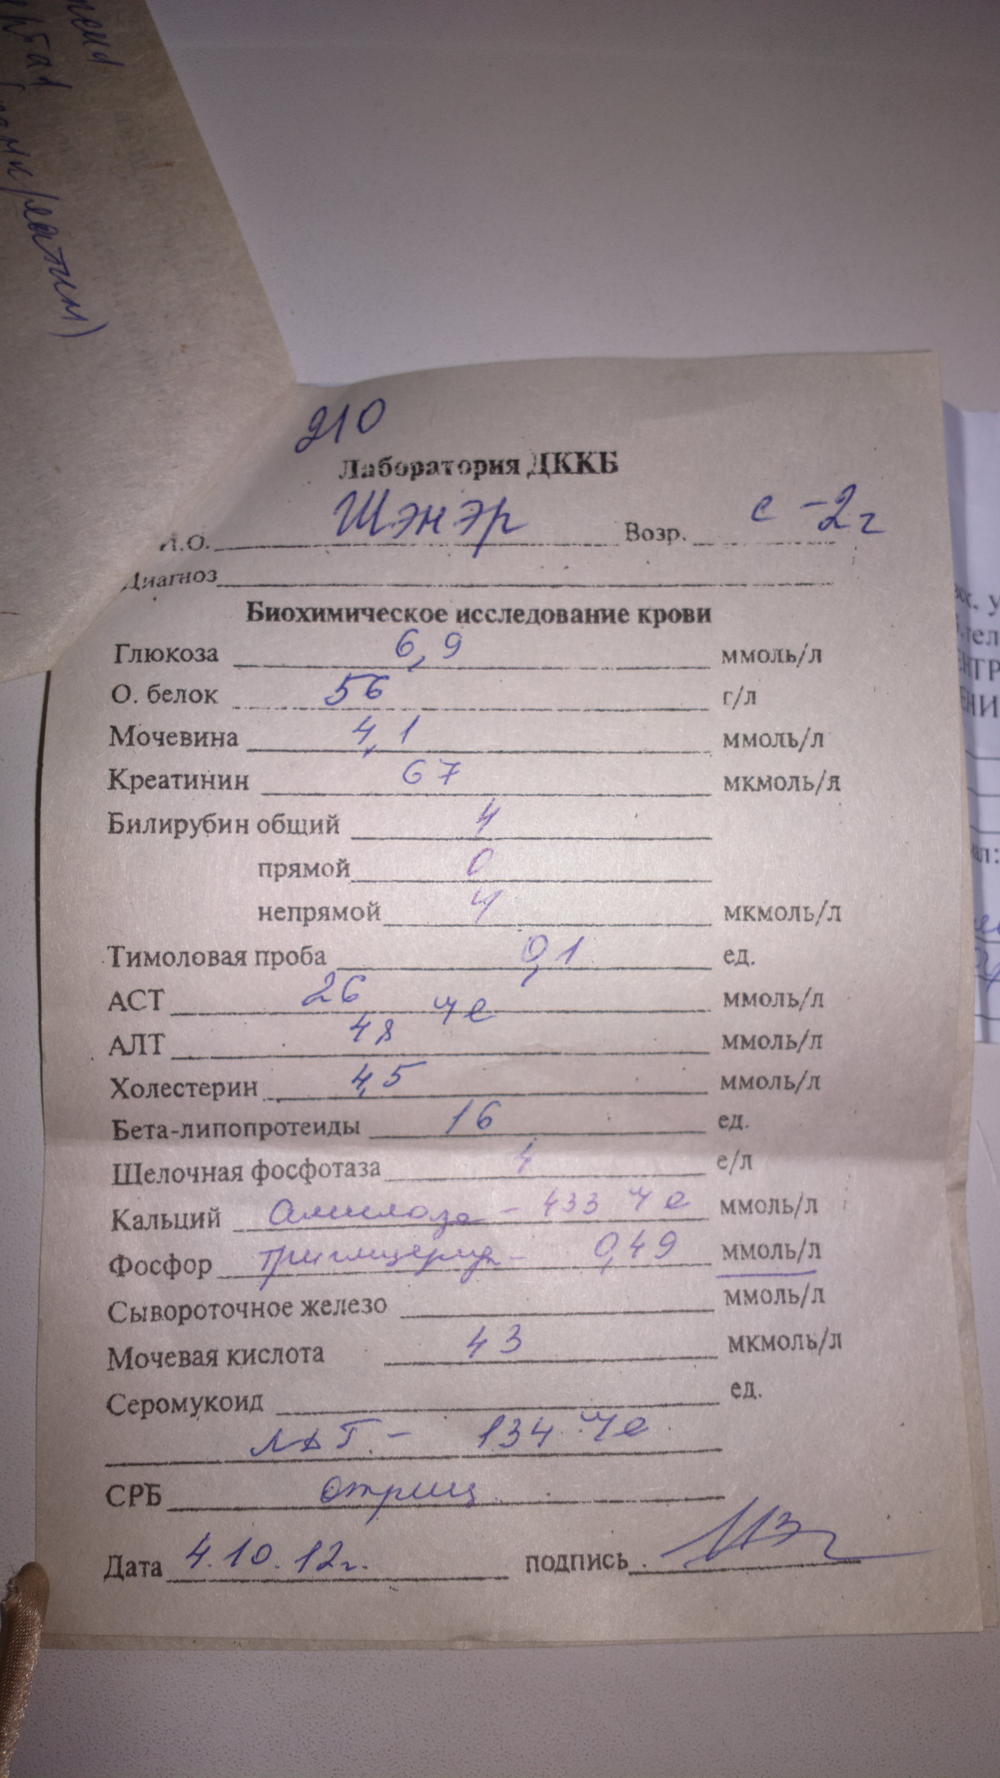 210
Лаборатория ДККБ
И.О. Шэнэр Возр. с -2г
Диагноз
Биохимическое исследование крови
Глюкоза 6,9 ммоль/л
О. белок 56 г/л
Мочевина 4,1 ммоль/л
Креатинин 67 мкмоль/л
Билирубин общий 4
прямой 0
непрямой 4 мкмоль/л
Тимоловая проба 0,1 ед.
АСТ 26 ммоль/л
АЛТ 48 Че ммоль/л
Холестерин 4,5 ммоль/л
Бета-липопротеиды 16 ед.
Щелочная фосфотаза 4 е/л
Кальций Амилаза - 433 Че ммоль/л
Фосфор Триглицерид - 0,49 ммоль/л
Сывороточное железо ммоль/л
Мочевая кислота 43 мкмоль/л
Серомукоид ед.
ЛДГ. - 134 Че
СРБ отриц
Дата 4.10.12г. подпись